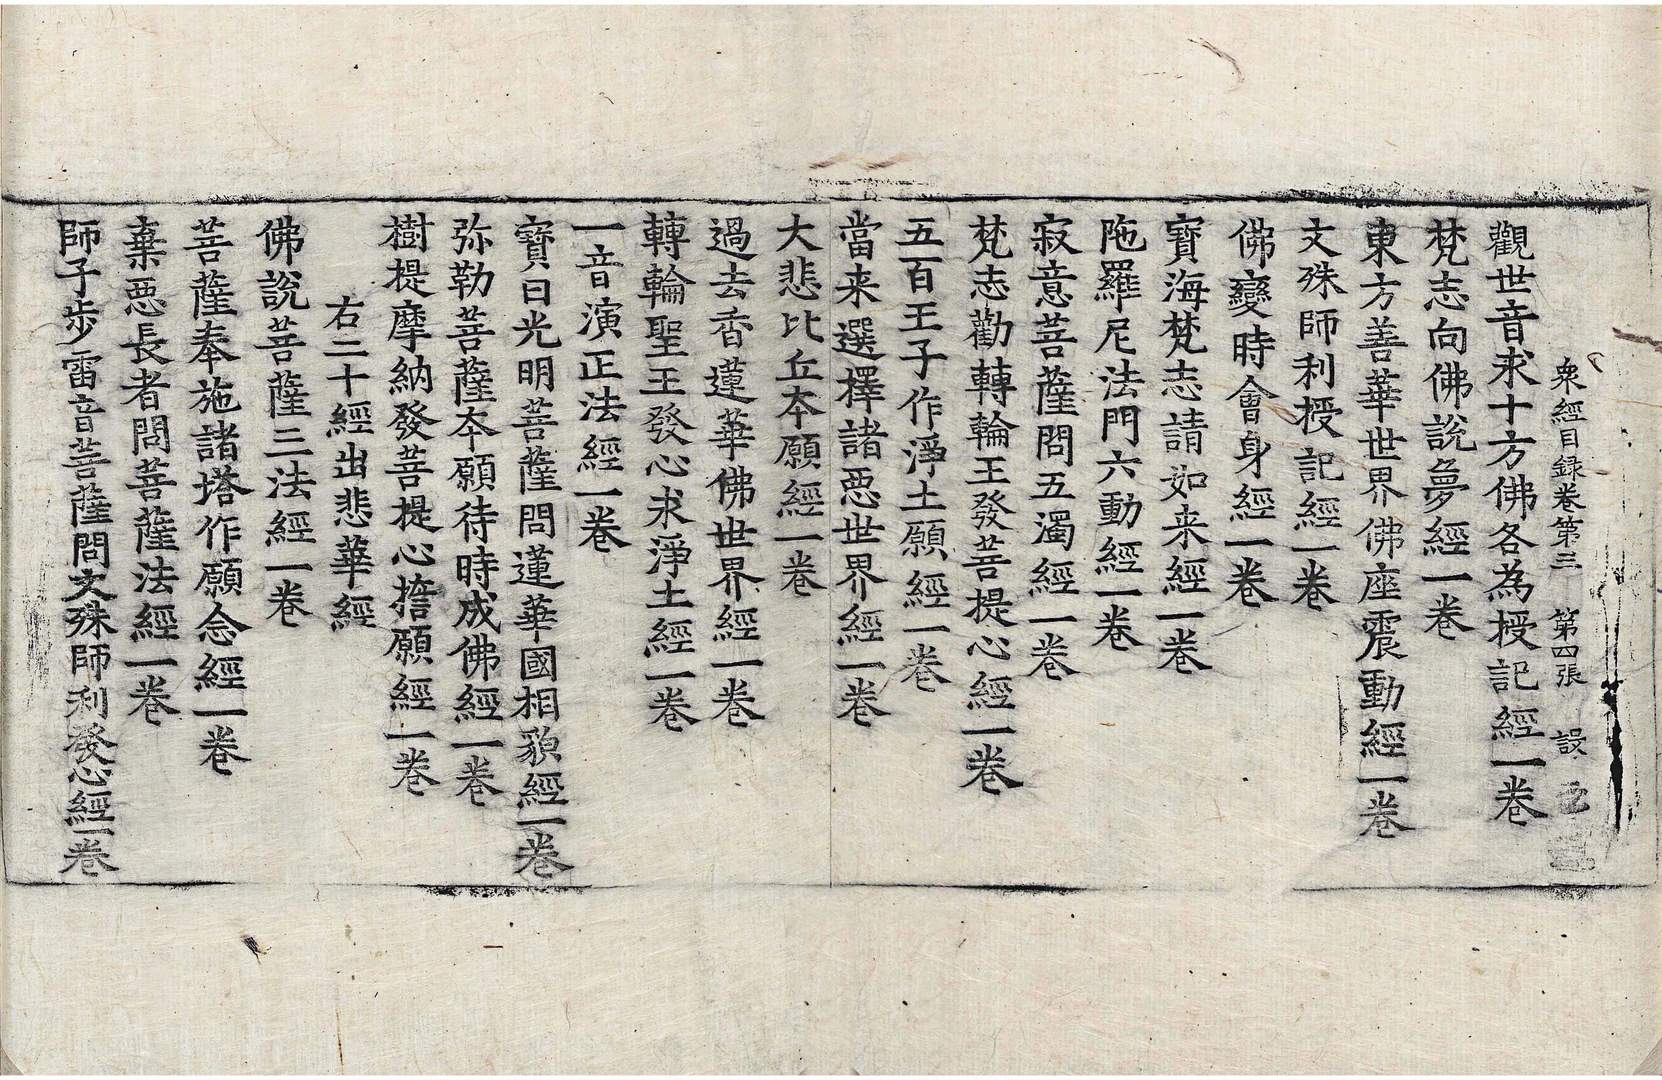 衆經目録卷第三 第四張 設
觀世音求十方佛各為授記經一卷
梵志向佛說夢經一卷
東方善華世界佛座震動經一卷
文殊師利授記經一卷
佛變時會身經一卷
寶海梵志請如来經一卷
陁羅尼法門六動經一卷
寂意菩薩問五濁經一卷
梵志勸轉輪王發菩提心經一卷
五百王子作淨土願經一卷
當来選擇諸惡世界經一卷
大悲比丘夲願經一卷
過去香蓮華佛世界經一卷
轉輪聖王發心求淨土經一卷
一音演正法經一卷
寶日光明菩薩問蓮華國相貌經一卷
弥勒菩薩夲願待時成佛經一卷
樹提摩納發菩提心擔願經一卷
右二十經出悲華經
佛說菩薩三法經一卷
菩薩奉施諸塔作願念經一卷
棄惡長者問菩薩法經一卷
師子步雷音菩薩問文殊師利發心經一卷